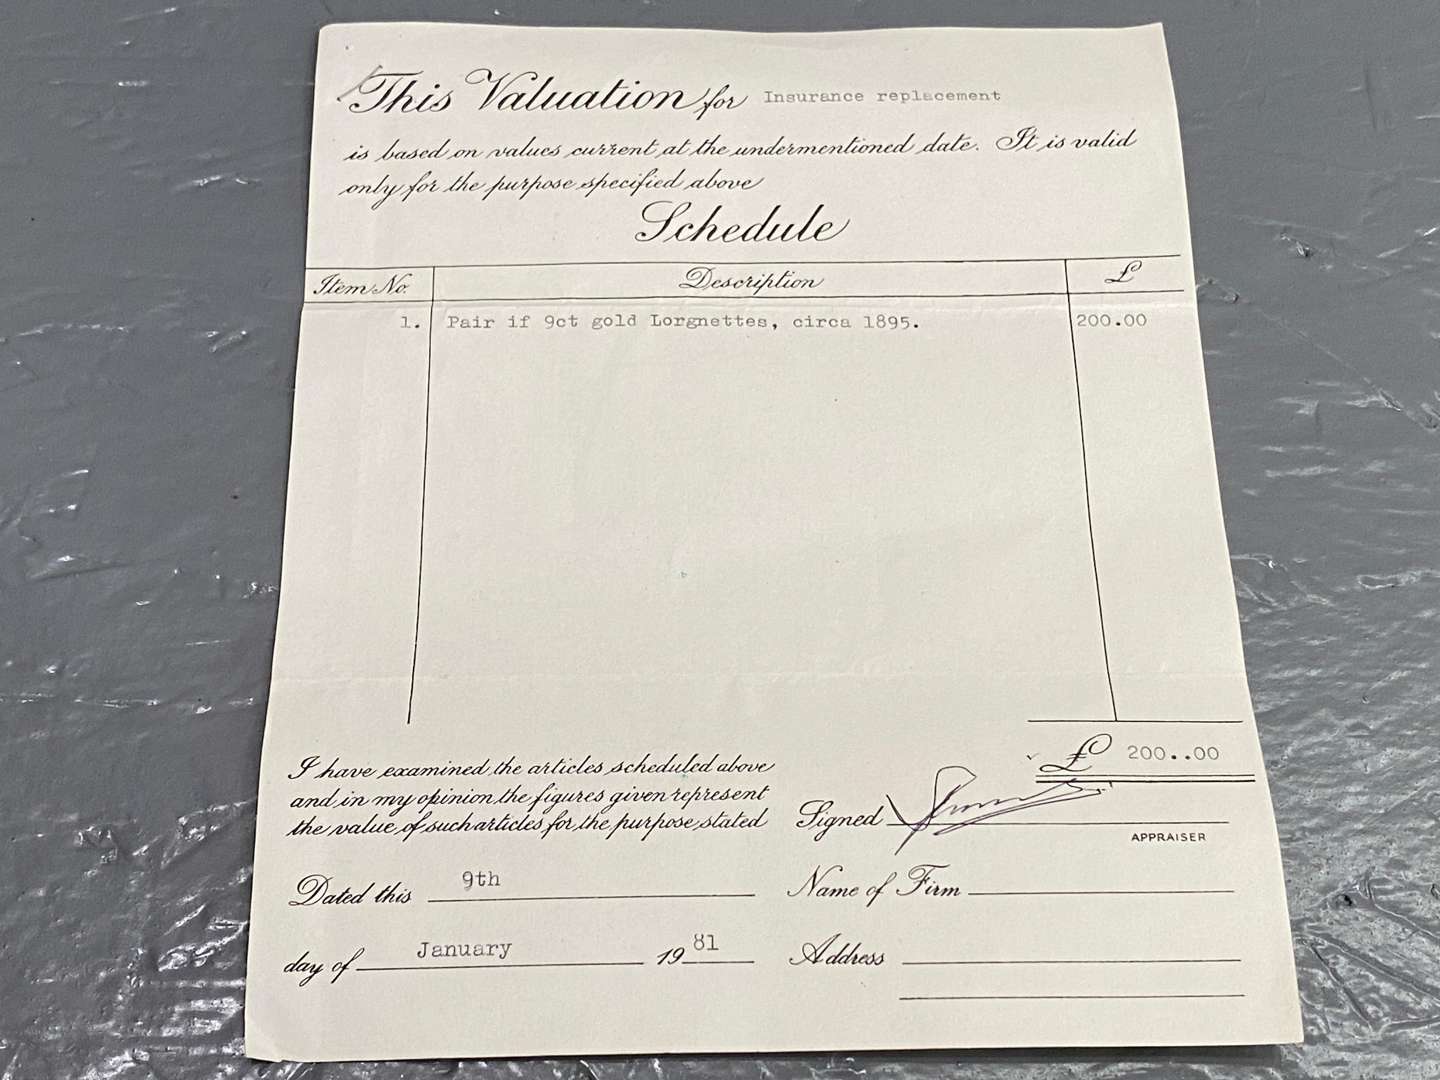 This Valuation for Insurance replacement
is based on values current at the undermentioned date. It is valid
only for the purpose specified above
Schedule
Item No. Description £
1. Pair if 9ct gold Lorgnettes, circa 1895. 200.00
£ 200..00
I have examined the articles scheduled above
and in my opinion the figures given represent
the value of such articles for the purpose stated
Signed
APPRAISER
Dated this 9th
Name of Firm
day of January 1981
Address